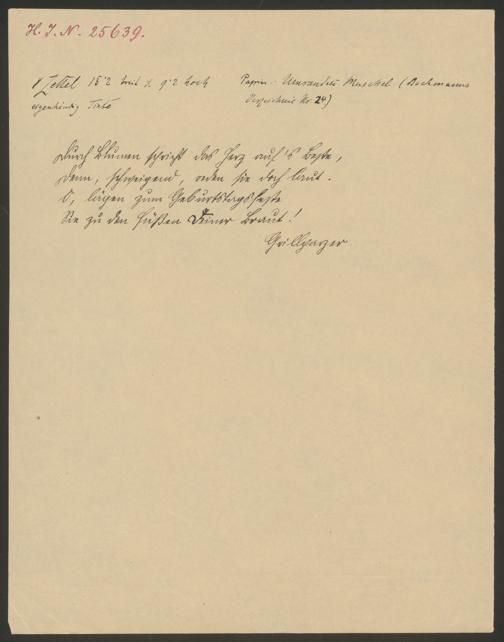 H. I. N. 25639.
1 Zettel 15·2 breit x 9·2 hoch
Papier: Umrandete Muschel (Bachmanns
eigenhändig Tinte
Verzeichnis Nr. 24)
Durch Blumen spricht das Herz auf's Beste,
Denn, schweigend, reden sie doch laut.
O, lägen zum Geburtstagsfeste
Sie zu den Füßen Deiner Braut!
Grillparzer